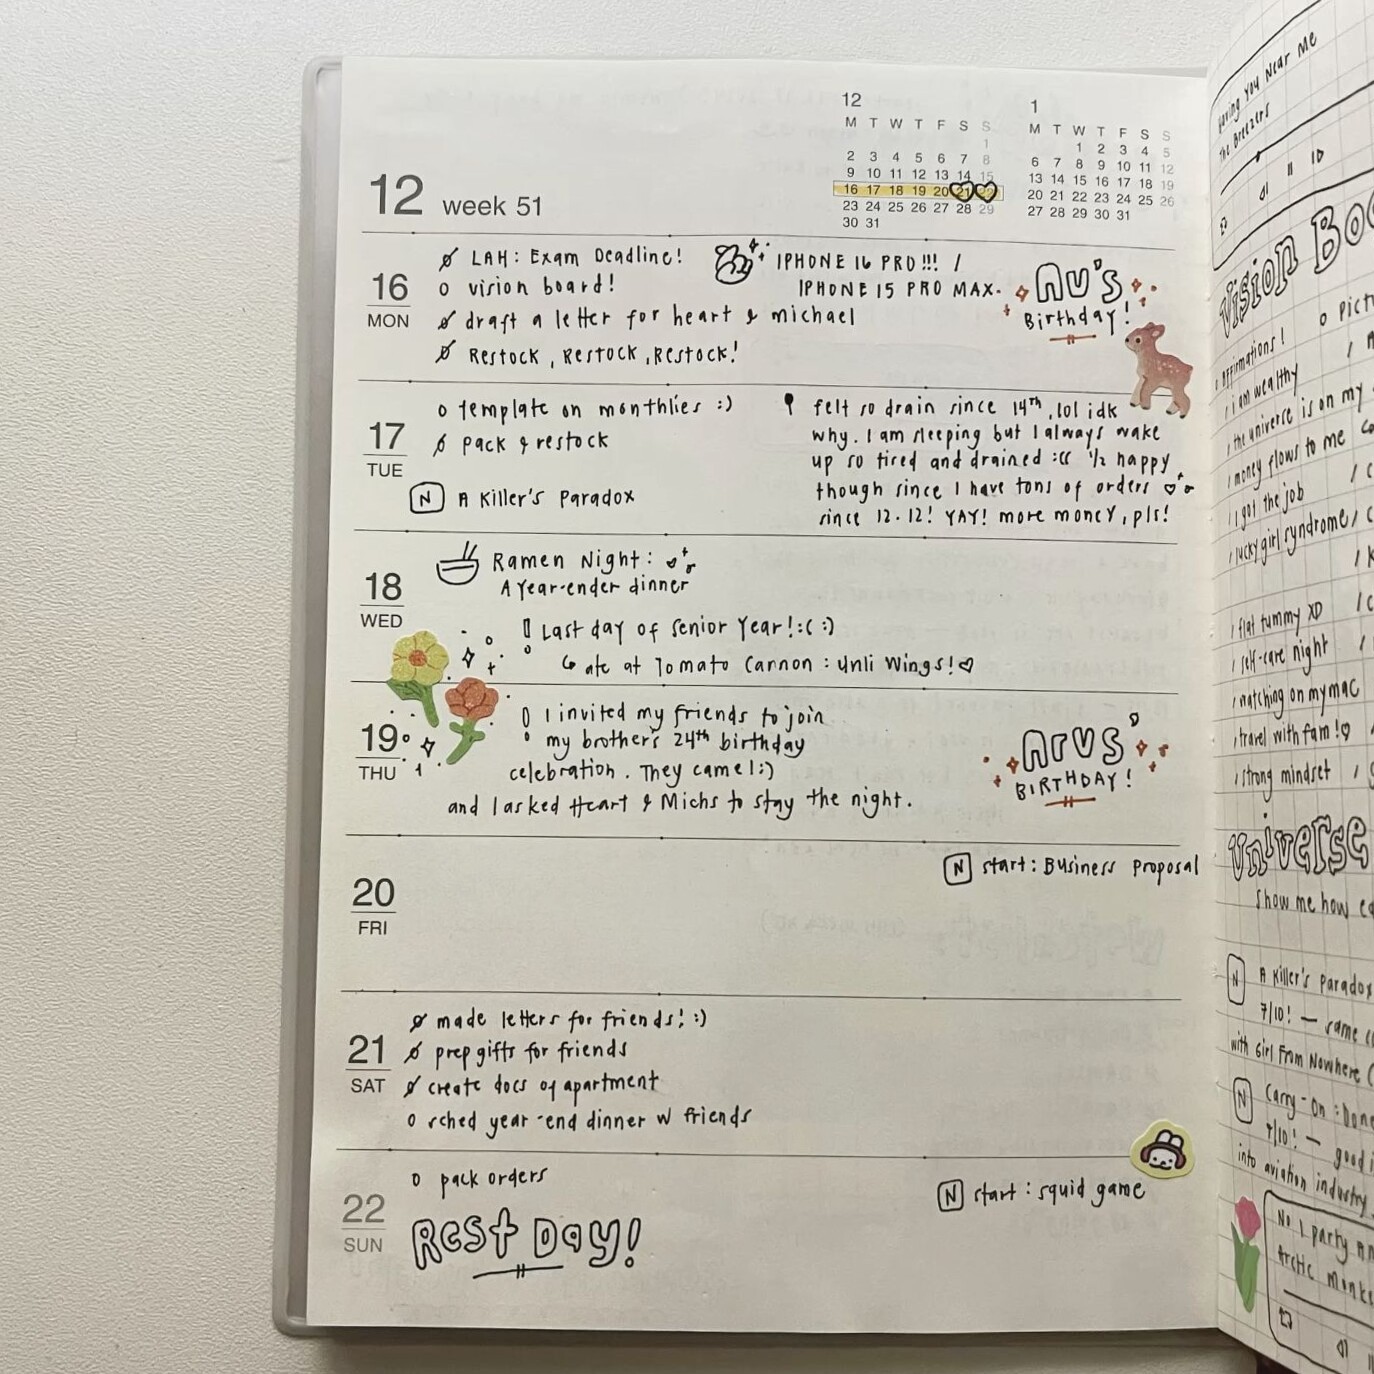 12 week 51
12
M T W T F S S
1
2 3 4 5 6 7 8
9 10 11 12 13 14 15
16 17 18 19 20 21 22
23 24 25 26 27 28 29
30 31
1
M T W T F S S
1 2 3 4 5
6 7 8 9 10 11 12
13 14 15 16 17 18 19
20 21 22 23 24 25 26
27 28 29 30 31
16
MON
LAH: Exam Deadline!
vision board!
draft a letter for heart & michael
Restock, Restock, Restock!
IPHONE 16 PRO!!! /
IPHONE 15 PRO MAX.
NU's
Birthday!
17
TUE
template on monthlies :)
pack & restock
N A Killer's Paradox
felt so drain since 14th, lol idk
why. I am sleeping but I always wake
up so tired and drained :(( 1/2 happy
though since I have tons of orders ♡
since 12.12! YAY! more money, pls!
18
WED
Ramen Night:
A Year-ender dinner
! Last day of senior year! :( :)
ate at Tomato Cannon: unli wings! ♡
19
THU
! I invited my friends to join
my brother's 24th birthday
celebration. They came! :)
and I asked Heart & Michs to stay the night.
Arvs
BIRTHDAY!
20
FRI
N start: Business Proposal
21
SAT
made letters for friends! :)
prep gifts for friends
create docs of apartment
sched year-end dinner w friends
22
SUN
pack orders
Rest Day!
N start: squid game
Having You Near Me
The Breezers
Vision
affirmations!
/ i am wealthy
/ the universe is on my
/ money flows to me
/ I got the job
/ lucky girl syndrome
/ flat tummy XD
/ self-care night
/ watching on my mac
/ travel with fam! ♡
/ strong mindset
Universe
show me how
N A Killer's Paradox
7/10! —
with Girl From Nowhere
N Carry-On:
7/10! — good
into aviation industry
No 1 party
Arctic